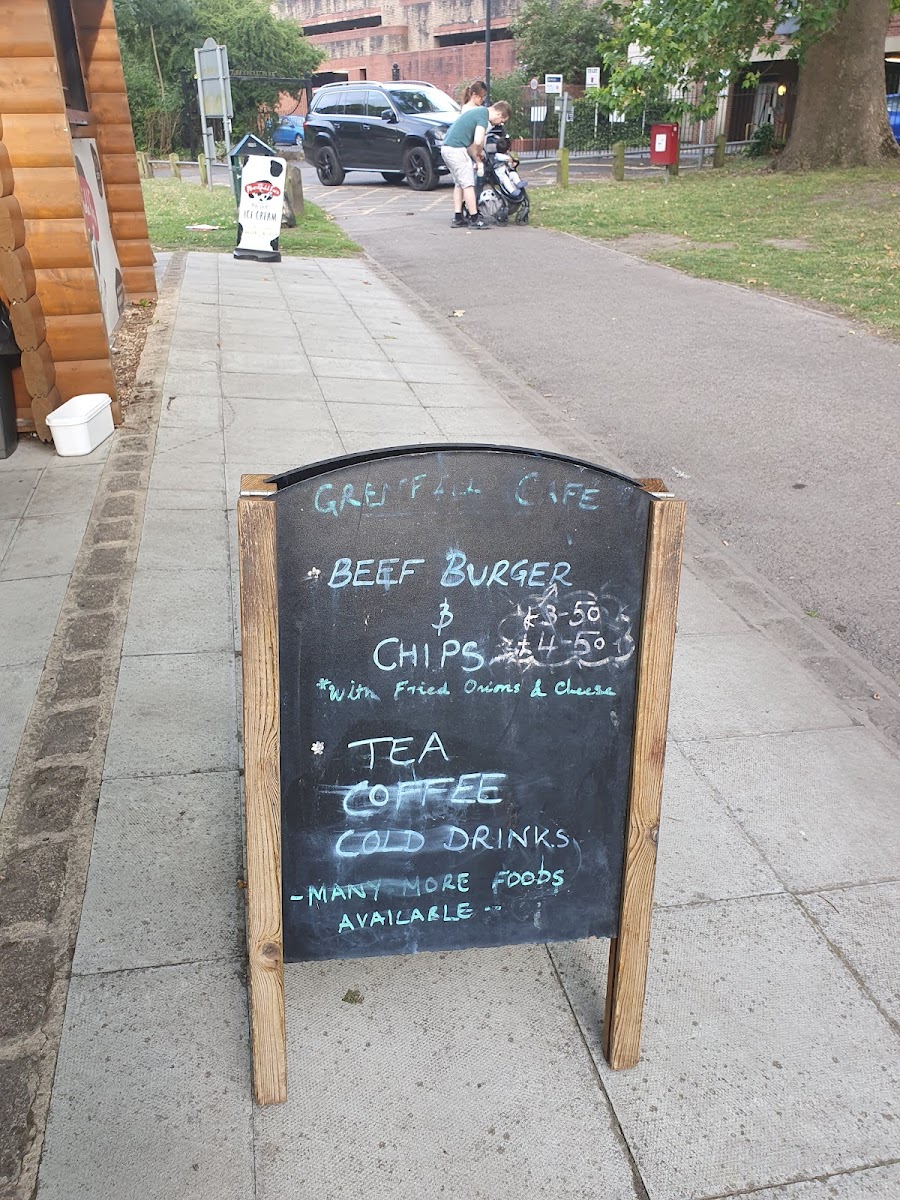 ICE CREAM
GRENFELL CAFE
BEEF BURGER
&
£3-50
CHIPS £4-50
*With Fried Onions & Cheese
TEA
COFFEE
COLD DRINKS
- MANY MORE FOODS
AVAILABLE -